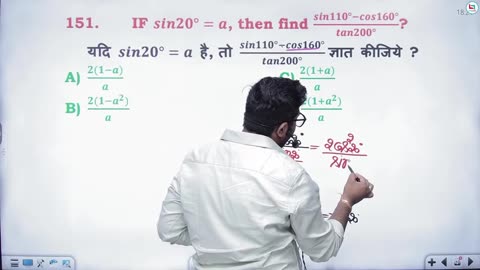 151. IF sin20° = a, then find (sin110°−cos160°)/tan200° ?
यदि sin20° = a है, तो (sin110°−cos160°)/tan200° ज्ञात कीजिये ?
A) 2(1−a)/a
C) 2(1+a)/a
B) 2(1−a²)/a
(1+a²)/a